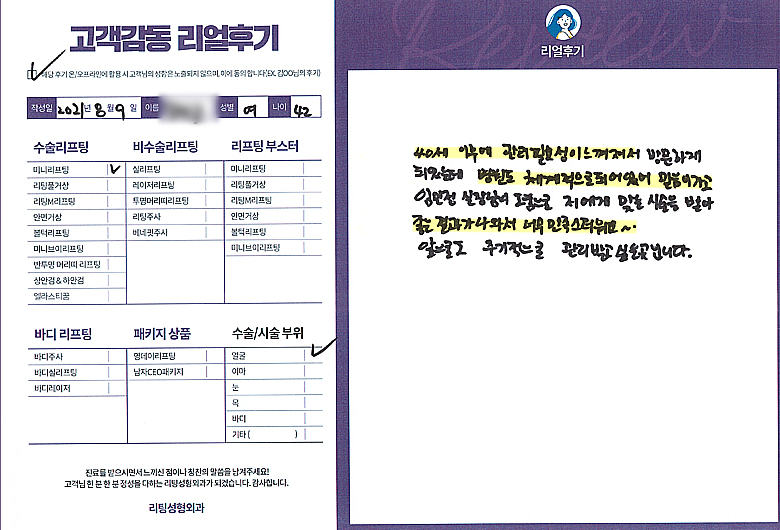 고객감동 리얼후기
해당 후기 온/오프라인에 활용 시 고객님의 성함은 노출되지 않으며, 이에 동의 합니다(EX. 김OO님의 후기)
작성일 2021년 8월 9일 이름 성별 여 나이 42
수술리프팅 비수술리프팅 리프팅 부스터
미니리프팅 실리프팅 미니리프팅
리팅풀거상 레이저리프팅 리팅풀거상
리팅M리프팅 투명머리띠리프팅 리팅M리프팅
안면거상 리팅주사 안면거상
볼턱리프팅 베네핏주사 볼턱리프팅
미니브이리프팅 미니브이리프팅
반투명 머리띠 리프팅
상안검 & 하안검
엘라스티꿈
바디 리프팅 패키지 상품 수술/시술 부위
바디주사 영데이리프팅 얼굴
바디실리프팅 남자CEO패키지 이마
바디레이저 눈
목
바디
기타 ( )
진료를 받으시면서 느끼신 점이나 칭찬의 말씀을 남겨주세요!
고객님 한 분 한 분 정성을 다하는 리팅성형외과가 되겠습니다. 감사합니다.
리팅성형외과
Review
리얼후기
40세 이후에 관리필요성이 느껴져서 방문하게
되었는데 병원도 체계적으로 되어있어 믿음이가고
실장님의 도움으로 저에게 맞는 시술을 받아
좋은 결과가 나와서 너무 만족스러워요~.
앞으로도 주기적으로 관리받고 싶은곳입니다.